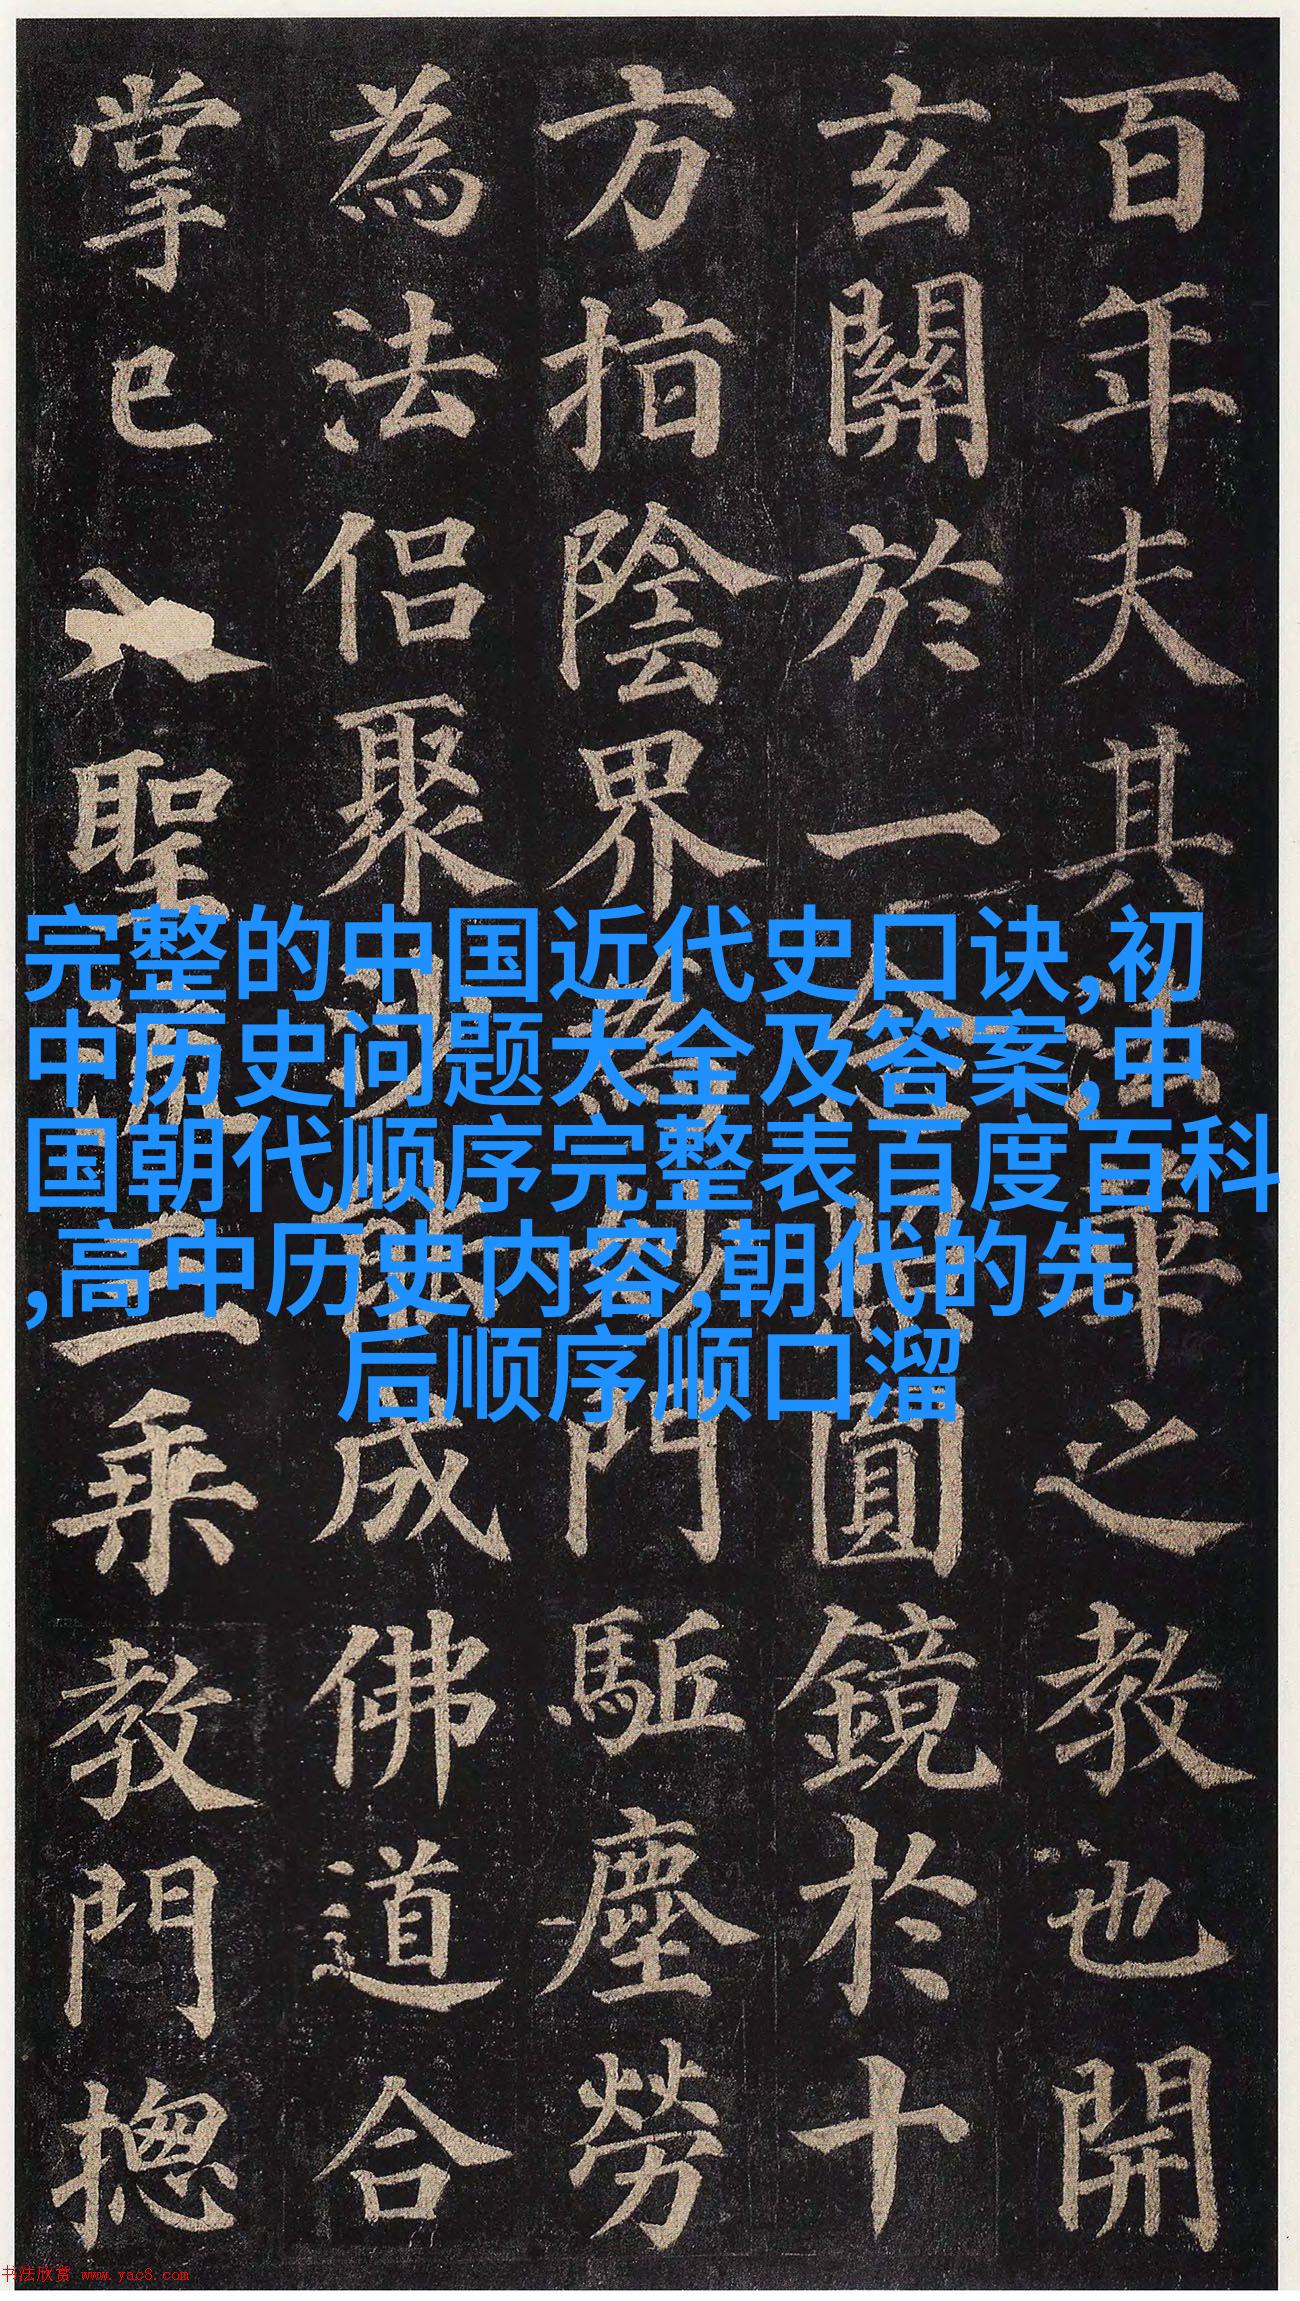 百年夫其法華之教也開
玄關於一念照圓鏡於十
方指陰界為妙門駈塵勞
為法侶聚沙能成佛道合
掌已入聖流三乘教門摠
完整的中国近代史口诀,初
中历史问题大全及答案,中
国朝代顺序完整表百度百科
,高中历史内容,朝代的先
后顺序顺口溜
书法欣赏 www.yac8.com